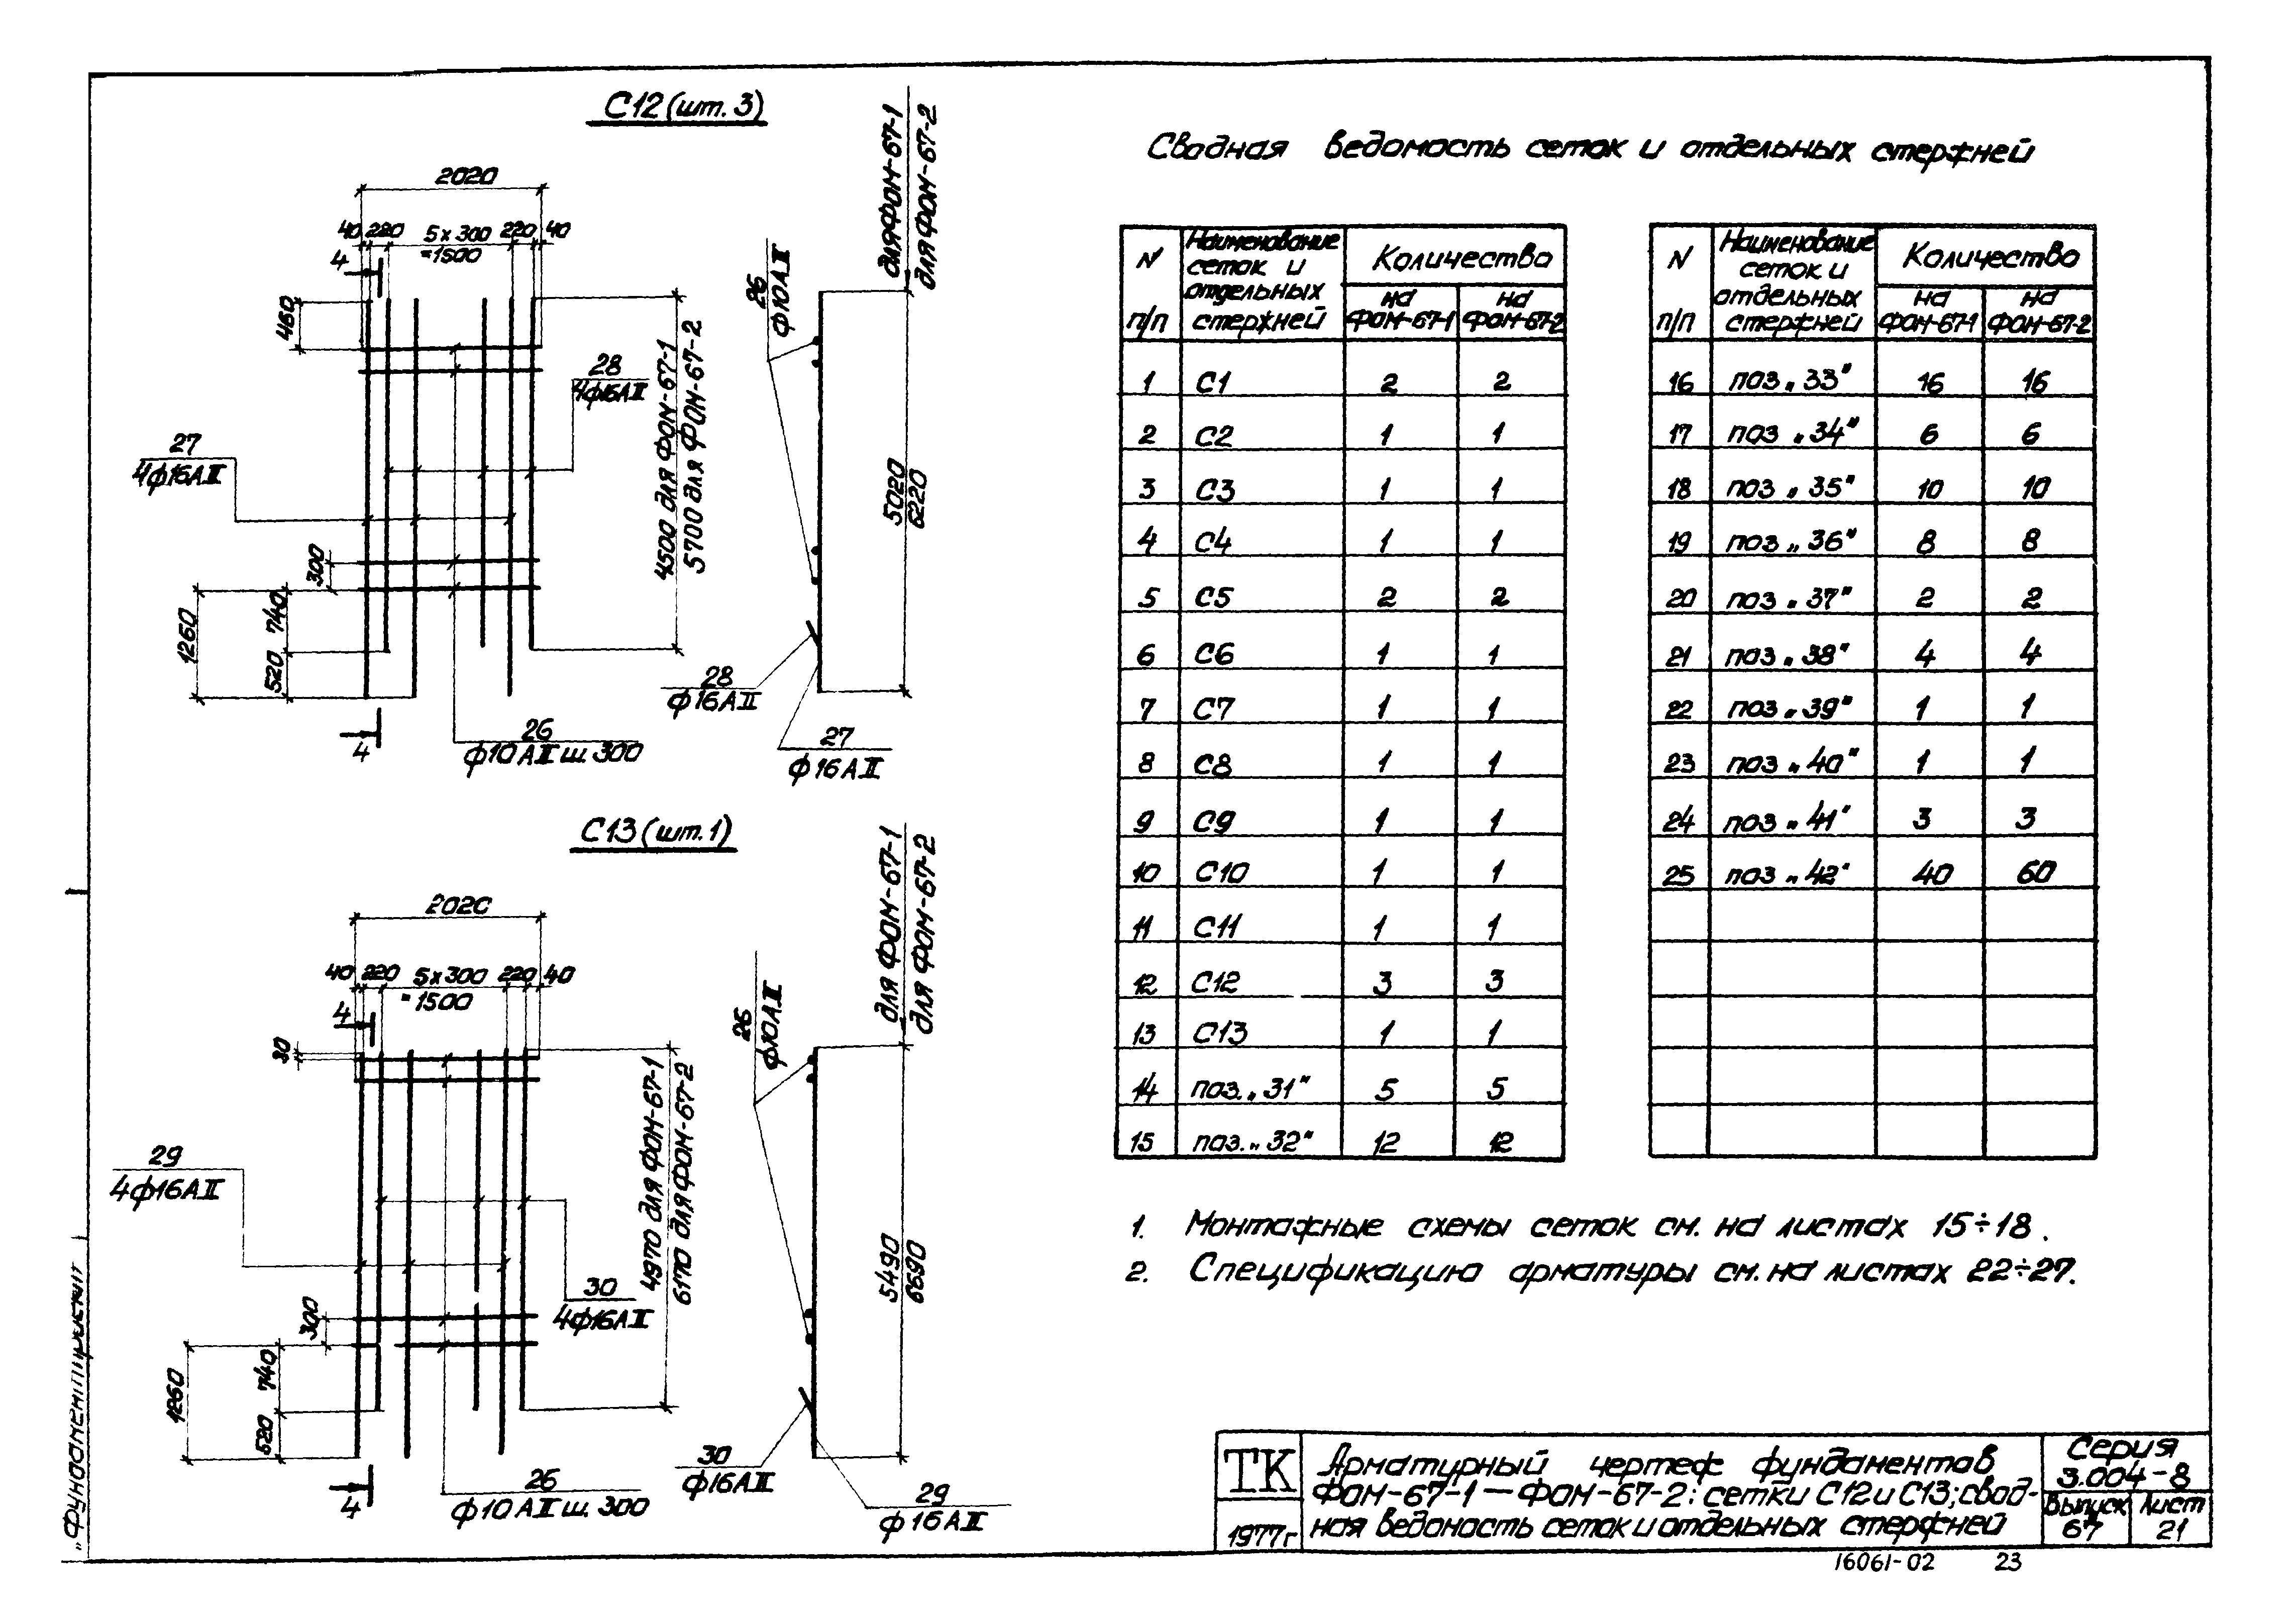 С12 (шт. 3)
2020
40 220 5х300 220 40
=1500
4
460
28
4ф16АII
27
4ф16АII
4500 для ФОМ-67-1
5700 для ФОМ-67-2
300
740
1260
520
4
26
ф10АII ш. 300
для ФОМ-67-1
для ФОМ-67-2
26
ф10АII
5020
6220
28
ф16АII
27
ф16АII
С13 (шт. 1)
2020
40 220 5х300 220 40
=1500
4
30
29
4ф16АII
4970 для ФОМ-67-1
6170 для ФОМ-67-2
30
4ф16АII
300
740
1260
520
4
26
ф10АII ш. 300
для ФОМ-67-1
для ФОМ-67-2
26
ф10АII
5490
6690
30
ф16АII
29
ф16АII
Сводная ведомость сеток и отдельных стержней
N п/п Наименование сеток и отдельных стержней Количество
на ФОМ-67-1 на ФОМ-67-2
1 С1 2 2
2 С2 1 1
3 С3 1 1
4 С4 1 1
5 С5 2 2
6 С6 1 1
7 С7 1 1
8 С8 1 1
9 С9 1 1
10 С10 1 1
11 С11 1 1
12 С12 3 3
13 С13 1 1
14 поз. „31" 5 5
15 поз. „32" 12 12
N п/п Наименование сеток и отдельных стержней Количество
на ФОМ-67-1 на ФОМ-67-2
16 поз „33" 16 16
17 поз „34" 6 6
18 поз „35" 10 10
19 поз „36" 8 8
20 поз „37" 2 2
21 поз „38" 4 4
22 поз „39" 1 1
23 поз „40" 1 1
24 поз „41" 3 3
25 поз „42" 40 60
1. Монтажные схемы сеток см. на листах 15÷18.
2. Спецификацию арматуры см. на листах 22÷27.
ТК
1977г
Арматурный чертеж фундаментов
ФОМ-67-1 — ФОМ-67-2: сетки С12 и С13; свод-
ная ведомость сеток и отдельных стержней
Серия
3.004-8
Выпуск Лист
67 21
16061-02 23
„Фундаментпроект